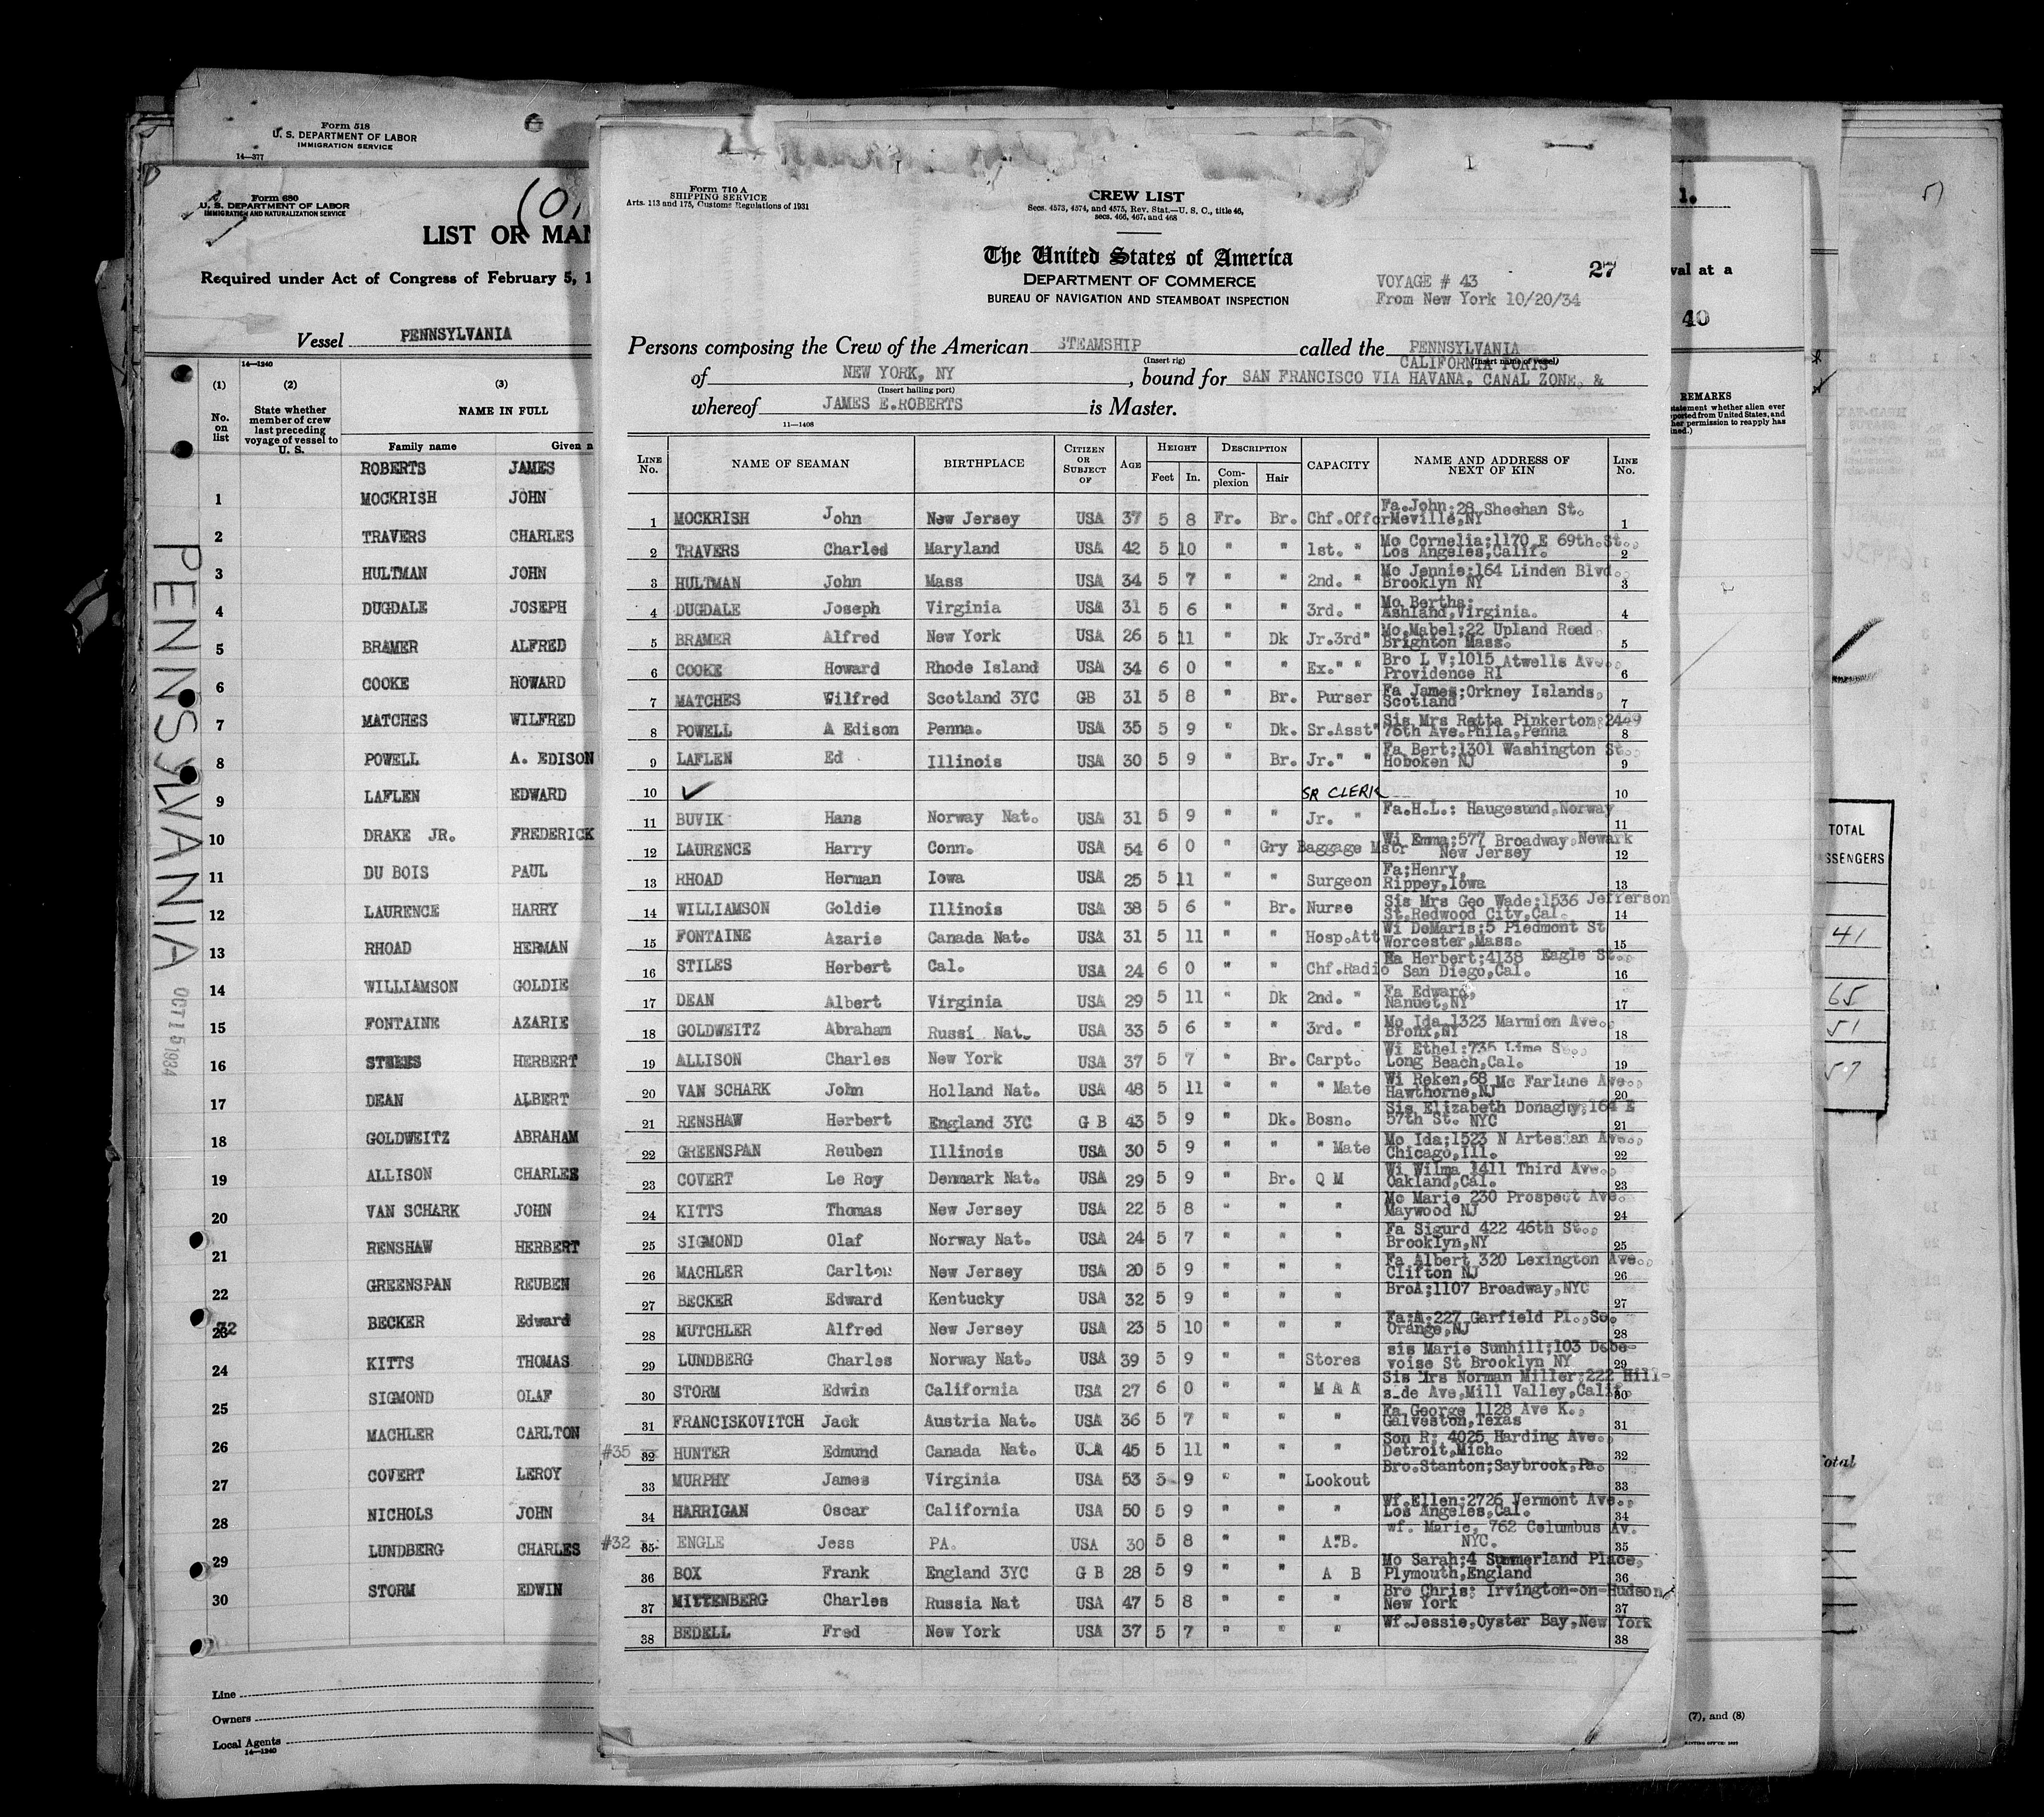 Form 518
U. S. DEPARTMENT OF LABOR
IMMIGRATION SERVICE
14—377
Form 680
U. S. DEPARTMENT OF LABOR
IMMIGRATION AND NATURALIZATION SERVICE
LIST OR MAN
Required under Act of Congress of February 5, 1
Vessel PENNSYLVANIA
14—1240
(1) (2) (3)
No. on list State whether member of crew last preceding voyage of vessel to U. S. NAME IN FULL
Family name Given n
ROBERTS JAMES
1 MOCKRISH JOHN
2 TRAVERS CHARLES
3 HULTMAN JOHN
4 DUGDALE JOSEPH
5 BRAMER ALFRED
6 COOKE HOWARD
7 MATCHES WILFRED
8 POWELL A. EDISON
9 LAFLEN EDWARD
10 DRAKE JR. FREDERICK
11 DU BOIS PAUL
12 LAURENCE HARRY
13 RHOAD HERMAN
14 WILLIAMSON GOLDIE
15 FONTAINE AZARIE
16 HERBERT
17 DEAN ALBERT
18 GOLDWEITZ ABRAHAM
19 ALLISON CHARLES
20 VAN SCHARK JOHN
21 RENSHAW HERBERT
22 GREENSPAN REUBEN
23 BECKER Edward
24 KITTS THOMAS
25 SIGMOND OLAF
26 MACHLER CARLTON
27 COVERT LEROY
28 NICHOLS JOHN
29 LUNDBERG CHARLES
30 STORM EDWIN
Line
Owners
Local Agents
14—1240
PENNSYLVANIA
OCT 15 1934
Form 710 A
SHIPPING SERVICE
Arts. 113 and 175, Customs Regulations of 1931
CREW LIST
Secs. 4573, 4574, and 4575, Rev. Stat.—U. S. C., title 46,
secs. 466, 467, and 468
The United States of America
DEPARTMENT OF COMMERCE
BUREAU OF NAVIGATION AND STEAMBOAT INSPECTION
27
VOYAGE # 43
From New York 10/20/34
Persons composing the Crew of the American STEAMSHIP called the PENNSYLVANIA
(Insert rig) CALIFORNIA PORTS (Insert name of vessel)
of NEW YORK, NY, bound for SAN FRANCISCO VIA HAVANA, CANAL ZONE, &
(Insert hailing port)
whereof JAMES E.ROBERTS is Master.
11—1408
LINE No. NAME OF SEAMAN BIRTHPLACE CITIZEN OR SUBJECT OF AGE HEIGHT Feet In. DESCRIPTION Complexion Hair CAPACITY NAME AND ADDRESS OF NEXT OF KIN LINE No.
1 MOCKRISH John New Jersey USA 37 5 8 Fr. Br. Chf.Offcr Fa.John:28 Sheehan St. Meville,NY 1
2 TRAVERS Charles Maryland USA 42 5 10 " " 1st. " Mo Cornelia;1170 E 69th.St. Los Angeles;Calif. 2
3 HULTMAN John Mass USA 34 5 7 " " 2nd. " Mo Jennie;164 Linden Blvd. Brooklyn NY 3
4 DUGDALE Joseph Virginia USA 31 5 6 " " 3rd. " Mo Bertha; Ashland,Virginia. 4
5 BRAMER Alfred New York USA 26 5 11 " Dk Jr.3rd" Mo.Mabel;22 Upland Road, Brighton Mass. 5
6 COOKE Howard Rhode Island USA 34 6 0 " " Ex." " Bro L V;1015 Atwells Ave., Providence RI 6
7 MATCHES Wilfred Scotland 3YC GB 31 5 8 " Br. Purser Fa James;Orkney Islands, Scotland 7
8 POWELL A Edison Penna. USA 35 5 9 " Dk. Sr.Asst" Sis Mrs Retta Pinkerton;2449 76th Ave.Phila,Penna 8
9 LAFLEN Ed Illinois USA 30 5 9 " Br. Jr." " Fa Bert;1301 Washington St., Hoboken NJ 9
10 ✓ SR CLERK 10
11 BUVIK Hans Norway Nat. USA 31 5 9 " " Jr. " Fa.H.L.: Haugesund,Norway 11
12 LAURENCE Harry Conn. USA 54 6 0 " Gry Baggage Mstr Wi Emma;577 Broadway,Newark New Jersey 12
13 RHOAD Herman Iowa USA 25 5 11 " " Surgeon Fa;Henry, Rippey,Iowa 13
14 WILLIAMSON Goldie Illinois USA 38 5 6 " Br. Nurse Sis Mrs Geo Wade;1536 Jefferson St.Redwood City,Cal. 14
15 FONTAINE Azarie Canada Nat. USA 31 5 11 " " Hosp.Att Wi DeMaris;5 Piedmont St Worcester,Mass. 15
16 STILES Herbert Cal. USA 24 6 0 " " Chf.Radio Fa Herbert;4138 Eagle St., San Diego,Cal. 16
17 DEAN Albert Virginia USA 29 5 11 " Dk 2nd. " Fa Edward, Nanuet,NY 17
18 GOLDWEITZ Abraham Russi Nat. USA 33 5 6 " " 3rd. " Mo Ida 1323 Marmion Ave., Bronx,NY 18
19 ALLISON Charles New York USA 37 5 7 " Br. Carpt. Wi Ethel:735 Lime S., Long Beach,Cal. 19
20 VAN SCHARK John Holland Nat. USA 48 5 11 " " " Mate Wi Reken,68 Mc Farlane Ave., Hawthorne,NJ 20
21 RENSHAW Herbert England 3YC G B 43 5 9 " Dk. Bosn. Sis Elizabeth Donaghy,164 E 57th St. NYC 21
22 GREENSPAN Reuben Illinois USA 30 5 9 " " " Mate Mo Ida;1523 N Artesian Ave., Chicago,Ill. 22
23 COVERT Le Roy Denmark Nat. USA 29 5 9 " Br. Q M Wi Wilma 1411 Third Ave., Oakland,Cal. 23
24 KITTS Thomas New Jersey USA 22 5 8 " " " Mc Marie 230 Prospect Ave. Maywood NJ 24
25 SIGMOND Olaf Norway Nat. USA 24 5 7 " " " Fa Sigurd 422 46th St., Brooklyn,NY 25
26 MACHLER Carlton New Jersey USA 20 5 9 " " " Fa Albert 320 Lexington Ave., Clifton NJ 26
27 BECKER Edward Kentucky USA 32 5 9 " " " BroA;1107 Broadway,NYC 27
28 MUTCHLER Alfred New Jersey USA 23 5 10 " " " Fa;A;227 Garfield Pl.,So. Orange,NJ 28
29 LUNDBERG Charles Norway Nat. USA 39 5 9 " " Stores sis Marie Sunhill;103 Debevoise St Brooklyn NY 29
30 STORM Edwin California USA 27 6 0 " " M A A Sis Mrs Norman Miller;222 Hill-s.de Ave,Mill Valley,Calif. 30
31 FRANCISKOVITCH Jack Austria Nat. USA 36 5 7 " " " Fa George 1128 Ave K., Galveston,Texas 31
#35 32 HUNTER Edmund Canada Nat. U.A 45 5 11 " " " Son R; 4025 Harding Ave., Detroit,Mich. 32
33 MURPHY James Virginia USA 53 5 9 " " Lookout Bro.Stanton;Saybrook,Pa. 33
34 HARRIGAN Oscar California USA 50 5 9 " " " Wf.Ellen;2726 Vermont Ave., Los Angeles,Cal. 34
#32 35 ENGLE Jess PA. USA 30 5 8 " " A.B. wf. Marie, 762 Columbus Av. NYC. 35
36 BOX Frank England 3YC G B 28 5 9 " " A B Mo Sarah;4 Summerland Place, Plymouth,England 36
37 MITTENBERG Charles Russia Nat USA 47 5 8 " " " Bro Chris; Irvington-on-Hudson, New York 37
38 BEDELL Fred New York USA 37 5 7 " " " Wf.Jessie,Oyster Bay,New York 38
1.
val at a
40
REMARKS
TOTAL
SSENGERS
41
65
51
57
otal
(7), and (8)